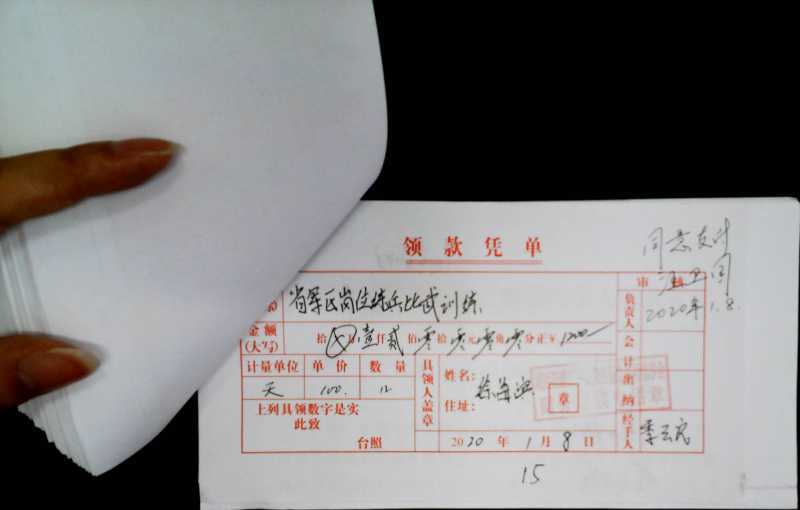 领款凭单
同意支付
审核
2020年1.8.
省军区岗位练兵比武训练
负责人
金额(大写) 拾 万壹仟贰佰零拾零元零角零分正¥1200
会计
计量单位 单价 数量
具领人盖章
姓名:
天 100. 12
住址:
章
出纳
上列具领数字是实
此致
台照
2020年1月8日
经手人
15